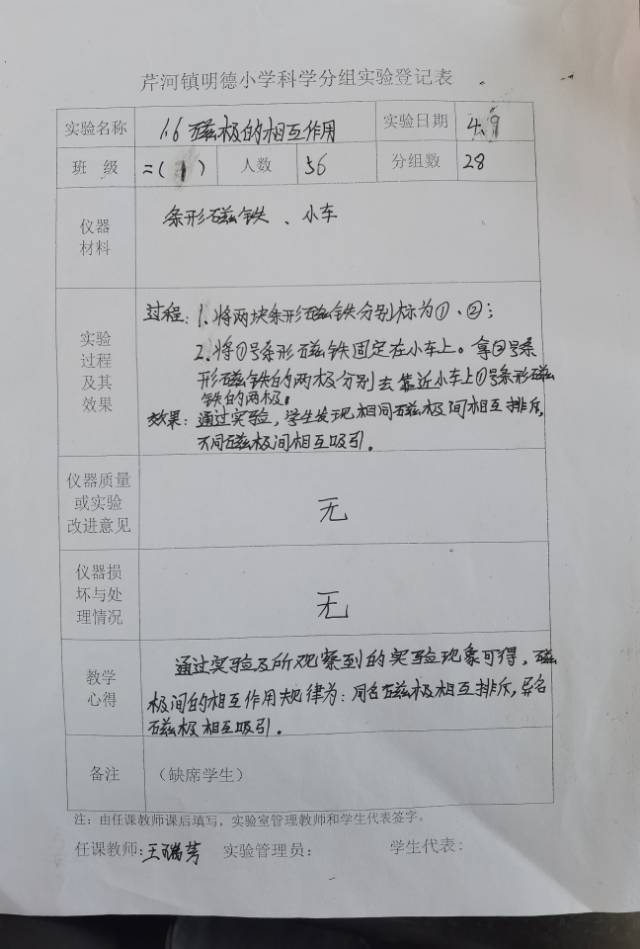 芹河镇明德小学科学分组实验登记表
实验名称 1.6 磁极的相互作用 实验日期 4.9
班 级 二(1) 人数 56 分组数 28
仪器
材料
条形磁铁、小车
实验
过程
及其
效果
过程:1.将两块条形磁铁分别标为①、②;
2.将①号条形磁铁固定在小车上。拿②号条
形磁铁的两极分别去靠近小车上①号条形磁
铁的两极。
效果:通过实验,学生发现相同磁极间相互排斥,
不同磁极间相互吸引。
仪器质量
或实验
改进意见
无
仪器损
坏与处
理情况
无
教学
心得
通过实验及所观察到的实验现象可得,磁
极间的相互作用规律为:同名磁极相互排斥,异名
磁极相互吸引。
备注 (缺席学生)
注:由任课教师课后填写,实验室管理教师和学生代表签字。
任课教师:王瑞芳 实验管理员: 学生代表: